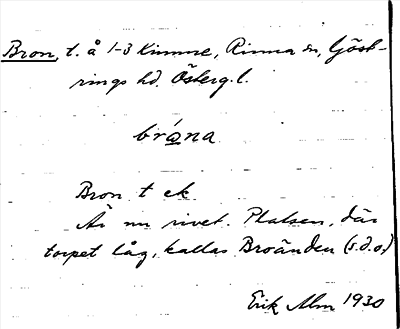 Bron, t. å 1-3 Kimme, Rinna sn, Göst-
rings hd. Österg. l.
bråna
Bron t ek
Är nu rivet. Platsen, där
torpet låg, kallas Broänden (s.d.o.)
Erik Alm 1930